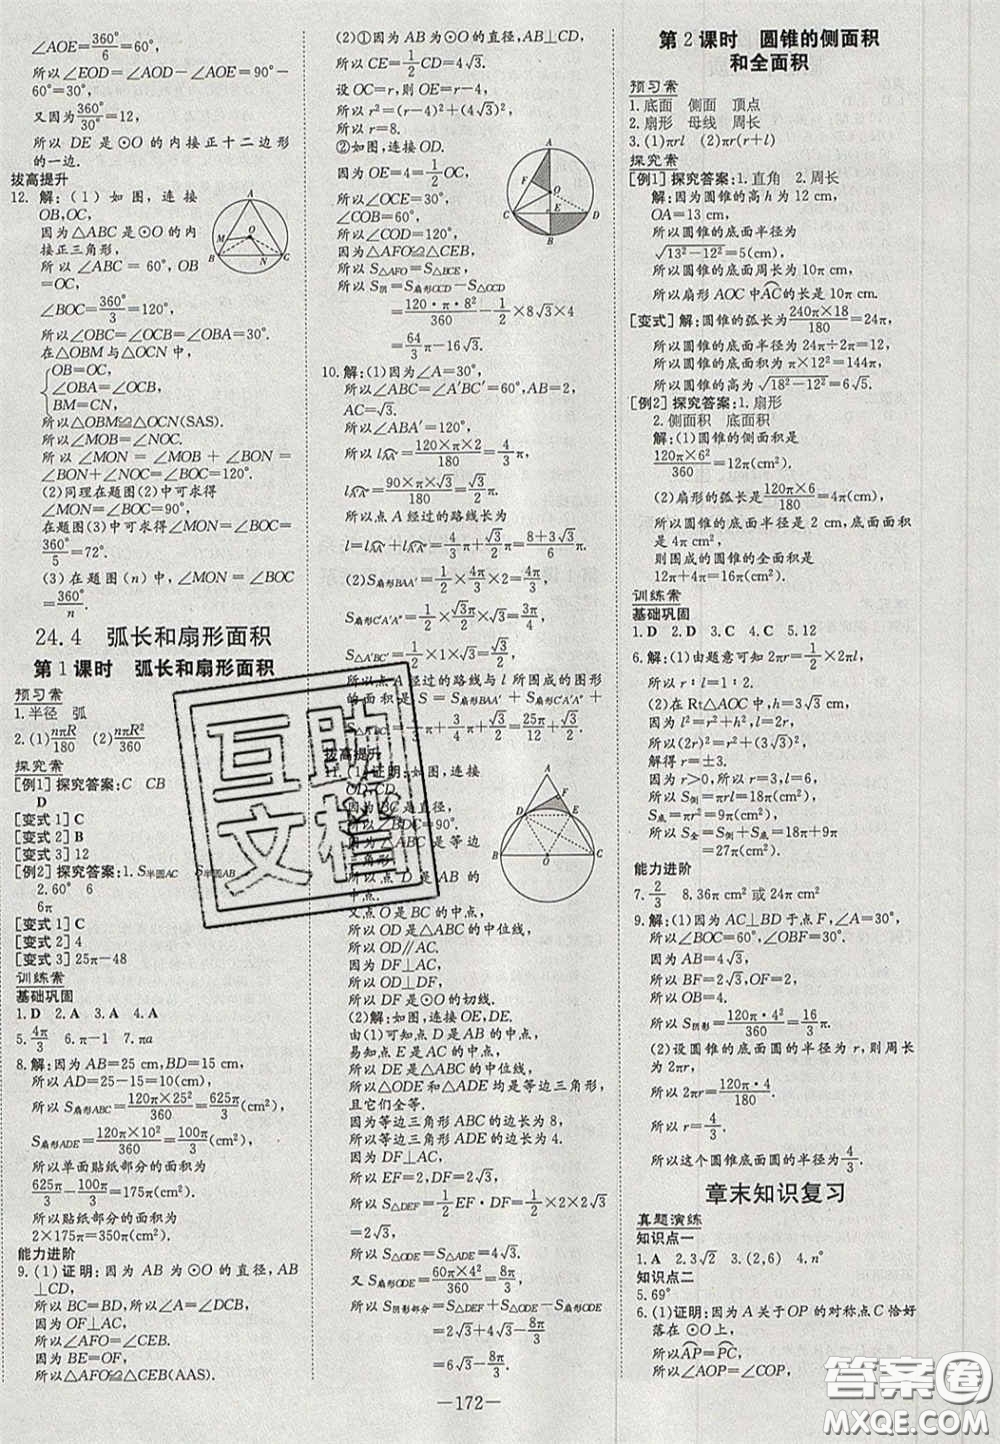 ∠AOE=360°/6=60°,
所以∠EOD=∠AOD-∠AOE=90°-
60°=30°.
又因为360°/30°=12,
所以 DE 是⊙O 的内接正十二边形
的一边.
拔高提升
12. 解:(1)如图,连接
OB,OC,
因为△ABC 是⊙O 的内
接正三角形,
所以∠ABC=60°,OB=
OC,
∠BOC=360°/3=120°,
所以∠OBC=∠OCB=∠OBA=30°.
在△OBM与△OCN中,
OB=OC,
∠OBA=∠OCB,
BM=CN,
所以△OBM≌△OCN(SAS).
所以∠MOB=∠NOC.
所以∠MON=∠MOB+∠BON=
∠BON+∠NOC=∠BOC=120°.
(2)同理在题图(2)中可求得
∠MON=∠BOC=90°,
在题图(3)中可求得∠MON=∠BOC=
360°/5=72°.
(3)在题图(n)中,∠MON=∠BOC=
360°/n.
24.4 弧长和扇形面积
第1课时 弧长和扇形面积
预习索
1.半径 弧
2.(1)nπR/180 (2)nπR²/360
探究索
[例1]探究答案:C CB
D
[变式1]C
[变式2]B
[变式3]12
[例2]探究答案:1.S半圆AC S半圆AB
2.60° 6
6π
[变式1]C
[变式2]4
[变式3]25π-48
训练索
基础巩固
1.D 2.A 3.A 4.A
5.4π/3 6.π-1 7.πa
8.解:因为AB=25 cm,BD=15 cm,
所以AD=25-15=10(cm),
所以S扇形ABC=120π×25²/360=625π/3(cm²),
S扇形ADE=120π×10²/360=100π/3(cm²),
所以单面贴纸部分的面积为
625π/3-100π/3=175π(cm²),
所以贴纸部分的面积为
2×175π=350π(cm²).
能力进阶
9.(1)证明:因为 AB 为⊙O的直径,AB
⊥CD,
所以BC=BD,所以∠A=∠DCB,
因为OF⊥AC,
所以∠AFO=∠CEB.
所以△AFO≌△CEB(AAS).
(2)①因为AB为⊙O的直径,AB⊥CD,
所以CE=1/2CD=4√3.
设OC=r,则OE=r-4,
所以r²=(r-4)²+(4√3)².
所以r=8.
②如图,连接OD.
因为OE=4=1/2OC,
所以∠OCE=30°,
∠COB=60°,
所以∠COD=120°,
因为△AFO≌△CEB,
所以S△AFO=S△BCE,
所以S阴=S扇形OCD-S△OCD
=120·π·8²/360-1/2×8√3×4
=64/3π-16√3.
10.解:(1)因为∠A=30°,
所以∠ABC=∠A'BC'=60°,AB=2,
AC=√3.
所以∠ABA'=120°,
所以l=120×π×2/180=4/3π,
l=90×π×√3/180=√3/2π.
所以点A经过的路线长为
l=l+l=4/3π+√3/2π=8+3√3/6π.
(2)S扇形BAA'=1/2×4/3π×2=4/3π,
S扇形C'A'A''=1/2×√3π/2×√3=3/4π,
S△A'BC'=1/2×1×√3=√3/2.
所以点A经过的路线与l所围成的图形
的面积是S=S扇形BAA'+S扇形C'A'A''+
S△A'BC'=4/3π+3/4π+√3/2=25/12π+√3/2.
拔高提升
11.(1)证明:如图,连接
OD,CD,
因为BC是直径,
所以∠BDC=90°.
因为△ABC是等边三角形,
所以点D是AB的中点.
又点O是BC的中点,
所以OD是△ABC的中位线,
所以OD∥AC.
因为DF⊥AC,
所以OD⊥DF,
所以DF是⊙O的切线.
(2)解:如图,连接OE,DE.
由(1)可知点D是AB的中点,
易知点E是AC的中点,
所以DE是△ABC的中位线,
所以△ODE和△ADE是等边三角形,
且它们全等.
因为等边三角形ABC的边长为8,
所以等边三角形ADE的边长为4.
因为DF⊥AC,
所以EF=2,DF=2√3.
所以S△DEF=1/2EF·DF=1/2×2×2√3=2√3.
所以S△ODE=S△ADE=4√3.
又S扇形ODE=60π×4²/360=8π/3,
所以S阴影部分=S△DEF+S△ODE-S扇形ODE
=2√3+4√3-8π/3
=6√3-8π/3.
第2课时 圆锥的侧面积
和全面积
预习索
1.底面 侧面 顶点
2.扇形 母线 周长
3.(1)πrl (2)πr(r+l)
探究索
[例1]探究答案:1.直角 2.周长
解:因为圆锥的高h为12 cm,
OA=13 cm,
所以圆锥的底面半径为
√13²-12²=5(cm),
所以圆锥的底面周长为10π cm,
所以扇形AOC中AC的长是10π cm.
[变式]解:圆锥的弧长为240π×18/180=24π,
所以圆锥的底面半径为24π÷2π=12,
所以圆锥的底面积为π×12²=144π,
所以圆锥的高为√18²-12²=6√5.
[例2]探究答案:1.扇形
2.侧面积 底面积
解:(1)圆锥的侧面积是
120π×6²/360=12π(cm²).
(2)扇形的弧长是120π×6/180=4π(cm),
所以圆锥的底面半径是2 cm,底面面积
是4π cm²,
则围成的圆锥的全面积是
12π+4π=16π(cm²).
训练索
基础巩固
1.D 2.D 3.A 4.C 5.12
6.解:(1)由题意可知1/2×2πl=2πr,
所以r∶l=1∶2.
(2)在Rt△AOC中,h=3√3 cm,
所以l²=r²+h²,l=2r,
所以(2r)²=(3√3)²+r²,
解得r=±3.
因为r>0,所以r=3,
所以S侧=πrl=18π(cm²),
S底=πr²=9π(cm²),
所以S全=S侧+S底=18π+9π
=27π(cm²).
能力进阶
7.2/3 8.36π cm²或24π cm²
9.解:(1)因为AC⊥BD于点F,∠A=30°,
所以∠BOC=60°,∠OBF=30°.
因为AB=4√3,
所以BF=2√3,OF=2,
所以OB=4.
所以S阴影=120π·4²/360=16/3π.
(2)设圆锥的底面圆的半径为r,则周长
为2πr,
所以2πr=120π·4/180.
所以r=4/3.
所以这个圆锥底面圆的半径为4/3.
章末知识复习
真题演练
知识点一
1.A 2.3√2 3.(2,6) 4.n°
知识点二
5.69°
6.(1)证明:因为A关于OP的对称点C恰好
落在⊙O上,
所以AP=PC,
所以∠AOP=∠COP,
—172—
互助文档
答案圈
MXQE.COM